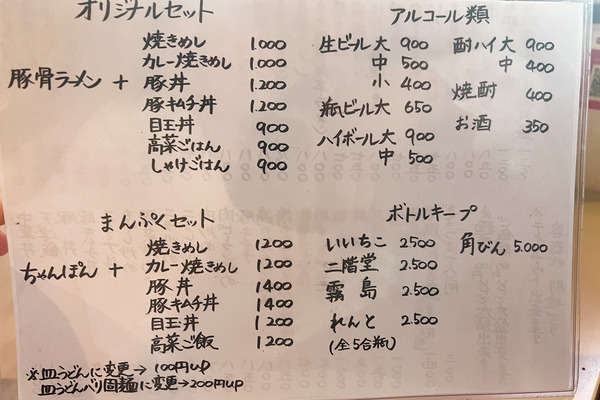 オリジナルセット
豚骨ラーメン +
焼きめし 1.000
カレー焼きめし 1.000
豚丼 1.200
豚キムチ丼 1.200
目玉丼 900
高菜ごはん 900
しゃけごはん 900
アルコール類
生ビール大 900
中 500
小 400
瓶ビール大 650
ハイボール大 900
中 500
酎ハイ大 900
中 400
焼酎 400
お酒 350
まんぷくセット
ちゃんぽん +
焼きめし 1200
カレー焼きめし 1200
豚丼 1400
豚キムチ丼 1400
目玉丼 1200
高菜ご飯 1200
※皿うどんに変更→100円UP
皿うどんバリ固麺に変更→200円UP
ボトルキープ
いいちこ 2500
二階堂 2.500
霧島 2.500
れんと 2.500
(全5合瓶)
角びん 5.000